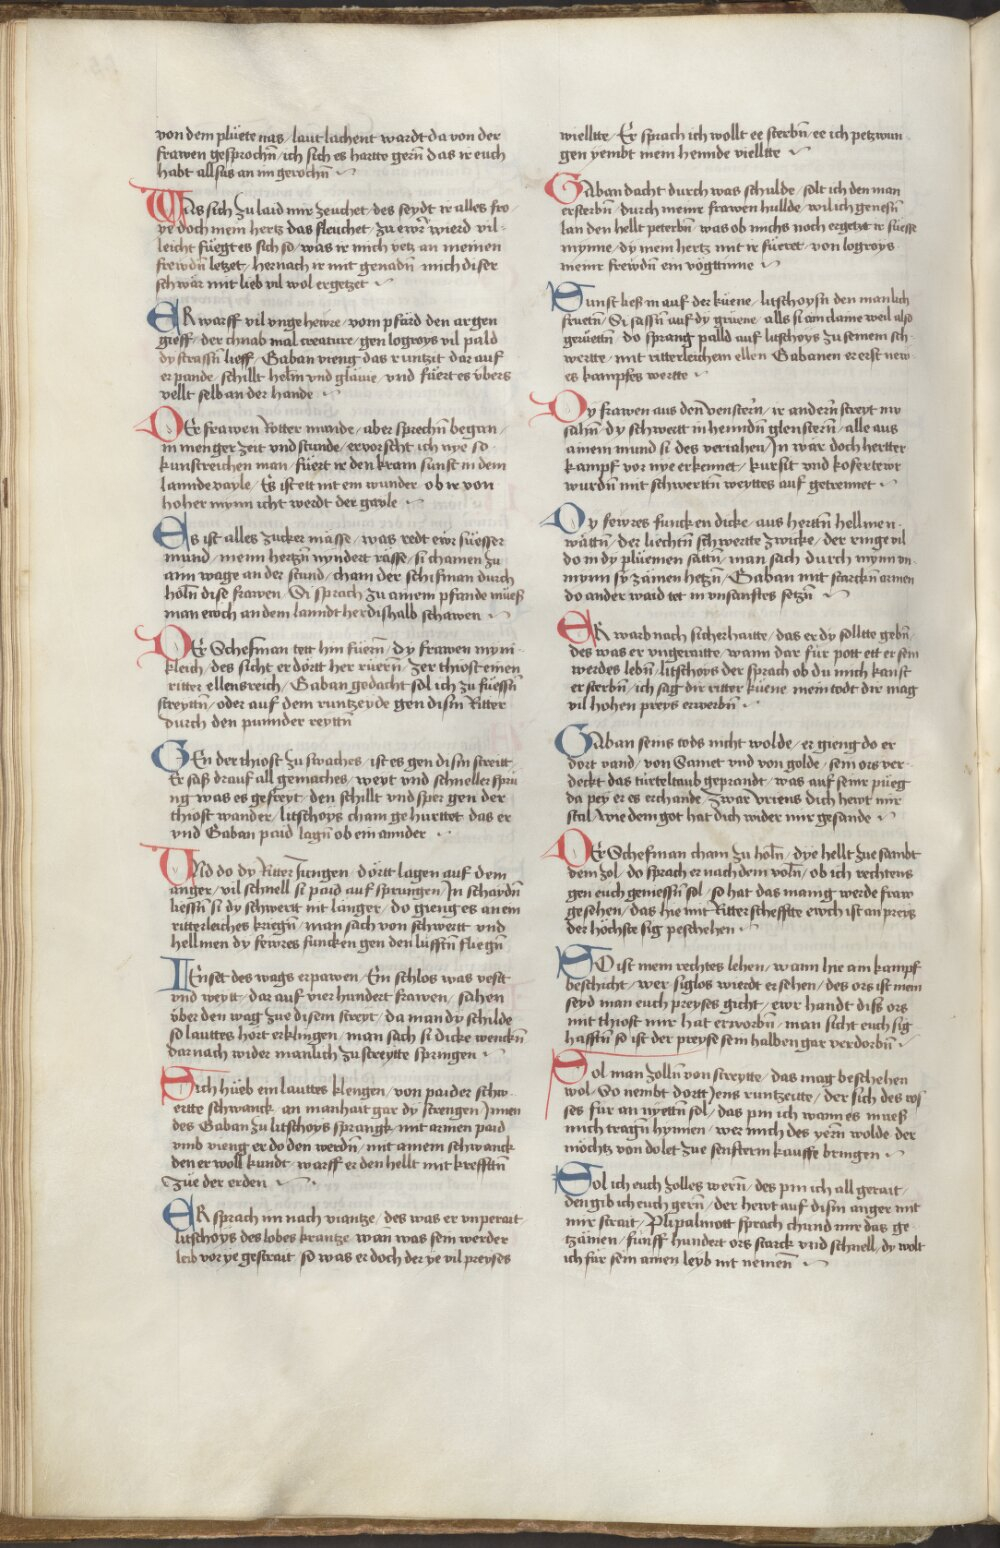 von dem plüete nas / laut lachent wardt da von der
frawen gesprochn̄ / ich sich es hartte gern̄ das ir euch
habt allsus an im gerochn̄
Was sich zu laid mir zeuchet / des seydt ir alles fro
ye doch mein hertz das fleuchet / zu ewr̄ wierd vil-
leicht füegt es sich so / was ir mich yetz an meinen
frewdn̄ letzet / hernach ir mit genadn̄ mich diser
schwär mit lieb vil wol ergetzet
ER warff vil vngehewre / vom pfärd den argen
gieff / der chnab mal creature / gen logroys vil pald
dy strassn̄ lieff / Gaban vieng das runtzit dar auf
er pande / schillt helm̄ vnd gläuie / vnd füert es übers
vellt selb an der hande
DEr frawen Rotter munde / aber sprechn̄ began /
in menger zeit vnd stunde / ervorscht ich nye so
kunstreichen man / füert ir den kram sunst in dem
lannde vayle / Es ist ett nit ein wunder ob ir von
hoher mynn icht werdt der gayle
Es ist alles zucker mässe / was redt ewr süesser
mund / meim hertzn̄ nyndert rässe / si chamen zu
ainn wage an der stund / cham der schifman durch
holn̄ dise frawen / Si sprach zu ainem pfande müeß
man ewch an dem lanndt herdishalb schawen
DEr Schefman tett hin füern̄ / dy frawen myni-
kleich / des sicht er dortt her rüern̄ / zer thiost einen
ritter ellensreich / Gaban gedacht sol ich zu füessn̄
streyttn̄ / oder auf dem runtzeyde gen disn̄ Ritter
durch den punnder reyttn̄
GEn der thiost zu swaches / ist es gen disn̄ streitt
Er saß drauf all gemaches / weyt vnd schneller sprü
ng was es gefreyt / den schillt vnd sper gen der
thiost wander / litschoys cham gehurttet das er
vnd Gaban paid lagn̄ ob ein annder
Vnd do dy Ritter Jungen / dortt lagen auf dem
anger / vil schnell si paid auf sprungen / Jn schaydn̄
liessn̄ si dy schwertt nit langer / do gieng es an ein
ritterleiches kriegn̄ / man sach von schwertt vnd
hellmen dy fewres funcken gen den lüfftn̄ fliegn̄
IEnset des wags erpawen / Ein schlos was vest
vnd weytt / dar auf vier hundert frawen / sahen
über den wag zue disem streyt / da man dy schilde
so lauttes hort erklingen / man sach si dicke wenckn̄
darnach wider manlich zu streytte springen
Sich hüeb ein lauttes klengen / von paider schw-
ertte schwanck / an manhait gar dy strengen Jnnen
des Gaban zu litschoys sprangk / mit armen paid
vmb vieng er do den werdn̄ / mit ainem schwanck
den er woll kundt / warff er den hellt mit krefftn̄
zue der erden
ER sprach im nach viantze / des was er vnperait
litschoys des lobes krantze / wan was sein werder
leib vor ye gestrait / so was er doch der ye vil preyses
wielltte / Er sprach ich wollt ee sterbn̄ / ee ich petzwun
gen yembt mein hennde viellte
GAban dacht durch was schulde / solt ich den man
ersterbn̄ / durch meinr frawen hullde / wil ich genesn̄
lan den hellt peterbn̄ / was ob michs noch ergetzt ir süesse
mynne / dy mein hertz mit ir füeret / von logroys
meinr frewdn̄ ein vögttinne
Sunst ließ in auf der küene / litschoysn̄ den manlich
fruettn̄ / Si sassn̄ auf dy grüene / alls si ain claine weil also
geruettn̄ / do sprang palld auf litschoys zu seinem sch-
wertte / mit ritterleichem ellen Gabanen er erst new-
es kampfes wertte
Dy frawen aus den venstern̄ / ir andern̄ streyt nu
sahn̄ / dy schwertt in henndn̄ glenstern̄ / alle aus
ainem mund si des veriahen / Jn wär doch hertter
kampf vor nye erkennet / kursit vnd kofertewr
wurdn̄ mit schwerttn̄ weyttes auf getrennet
Dy fewres funcken dicke / aus hertn̄ hellmen
wättn̄ / der liechtn̄ schwertte zwicke / der ringe vil
do in dy plüemen sättn̄ / man sach durch mynn vn-
mynn sy zämen hetzn̄ / Gaban mit starckn̄ armen
do ander waid tet in vnsanftes setzn̄
ER warb nach sicherhaitte / das er dy solltte gebn̄
des was er vngeraitte / wann dar für pott ett er sein
werdes lebn̄ / litschoys der sprach ob du mich kanst
ersterbn̄ / ich sag dir ritter küene mein todt dir mag
vil hohen preys erwerbn̄
GAban seins tods nicht wolde / er gieng do er
dort vand / von Samet vnd von golde / sein ors ver-
deckt das türteltaub geprandt / was auf seinr püeg
da pey er es erchande / zwar vriens dich hewt mir
stal / wie dein got hat dich wider mir gesande
DEr Schefman cham zu holn̄ / dye hellt zue sambt
dem zol / do sprach er nach dem voln̄ / ob ich rechtens
gen euch geniessn̄ sol / so hat das manig werde fraw
gesehen / das hie mit Ritterschefftte ewch ist an preys
der höchste sig peschehen
SO ist mein rechtes lehen / wann hie am kampf
beschicht / wer siglos wierdt ersehen / des ors ist mein
seyd man euch preyses gicht / ewr handt diss ors
mit thiost mir hat erworbn̄ / man sicht euch sig-
hafftn̄ so ist der preyse sein halben gar verdorbn̄
Sol man zolln̄ von streytte / das mag beschehen
wol / So nembt dortt Jens runtzeitte / der sich des ros-
ses für an nyettn̄ sol / das pin ich wann es mueß
mich tragn̄ hynnen / wer mich des yern̄ wolde der
möchtz von dolet zue senfterm kauffe bringen
Sol ich euch zolles wern̄ / des pin ich all gerait /
den gib ich euch gern̄ / der hewt auf disn̄ anger mit
mir strait / Plipalinott sprach chund mir das ge-
tzämen / fünff hundert ors starck vnd schnell / dy wolt
ich für sein ainen leyb nit nemen̄